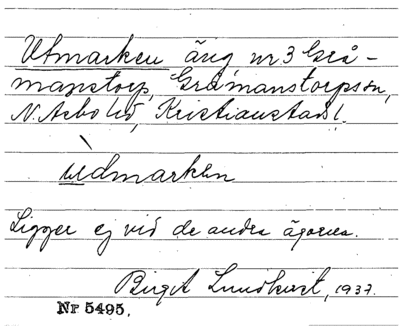 Utmarken äng nr 3 Grå-
manstorp, Gråmanstorps sn,
N. Åsbo hd, Kristianstads l.
ùdmarken
Ligger ej vid de andra ägorna.
Birgit Lundkvist, 1937.
Nr 5495.